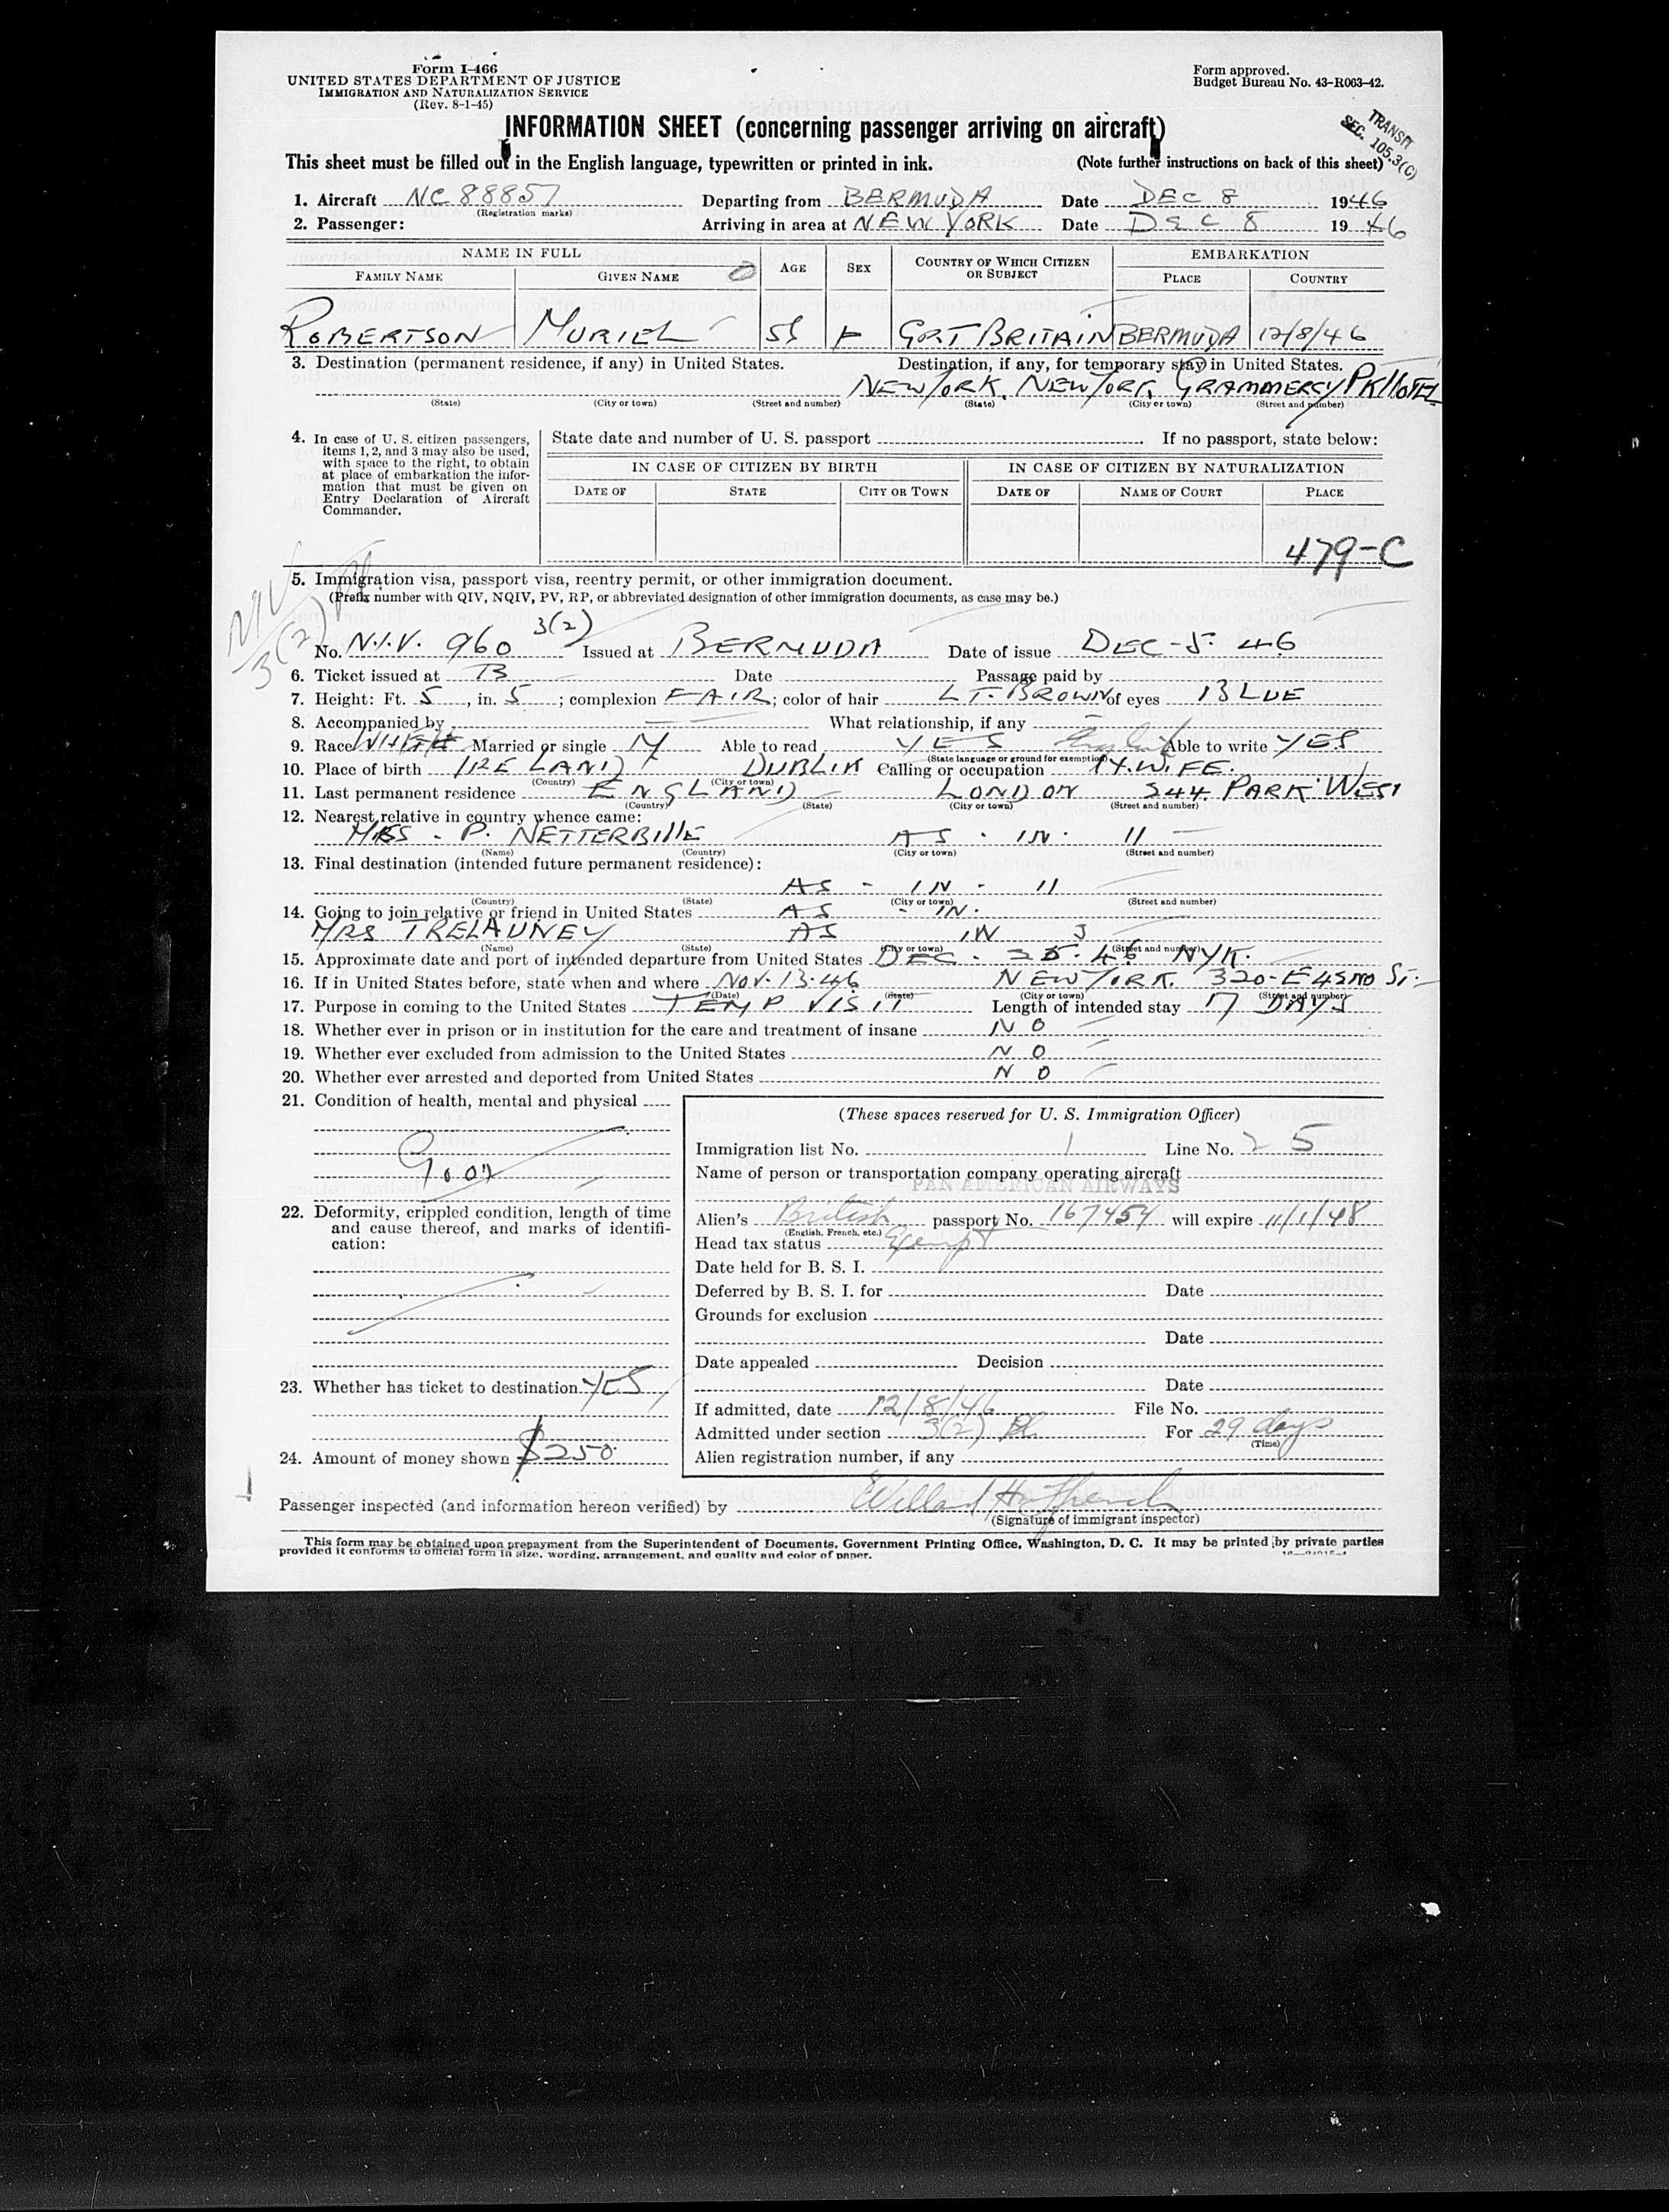 Form I-466
UNITED STATES DEPARTMENT OF JUSTICE
IMMIGRATION AND NATURALIZATION SERVICE
(Rev. 8-1-45)
Form approved.
Budget Bureau No. 43-R063-42.
TRANSIT
SEC. 105.3(C)
INFORMATION SHEET (concerning passenger arriving on aircraft)
This sheet must be filled out in the English language, typewritten or printed in ink. (Note further instructions on back of this sheet)
1. Aircraft NC 88857 Departing from BERMUDA Date DEC 8 1946
(Registration marks)
2. Passenger: Arriving in area at NEW YORK Date DEC 8 19 46
NAME IN FULL AGE SEX COUNTRY OF WHICH CITIZEN OR SUBJECT EMBARKATION
FAMILY NAME GIVEN NAME PLACE COUNTRY
ROBERTSON MURIEL F GRT BRITAIN BERMUDA 12/8/46
3. Destination (permanent residence, if any) in United States. Destination, if any, for temporary stay in United States.
NEW YORK, NEW YORK, GRAMMERCY PK HOTEL
(State) (City or town) (Street and number) (State) (City or town) (Street and number)
4. In case of U. S. citizen passengers, items 1, 2, and 3 may also be used, with space to the right, to obtain at place of embarkation the information that must be given on Entry Declaration of Aircraft Commander.
State date and number of U. S. passport If no passport, state below:
IN CASE OF CITIZEN BY BIRTH IN CASE OF CITIZEN BY NATURALIZATION
DATE OF STATE CITY OR TOWN DATE OF NAME OF COURT PLACE
479-C
5. Immigration visa, passport visa, reentry permit, or other immigration document.
(Prefix number with QIV, NQIV, PV, RP, or abbreviated designation of other immigration documents, as case may be.)
NIV
3(2)
No. N.I.V. 960 3(2) Issued at BERMUDA Date of issue DEC-5-46
6. Ticket issued at B Date Passage paid by
7. Height: Ft. 5, in. 5; complexion FAIR; color of hair LT. BROWN of eyes BLUE
8. Accompanied by What relationship, if any
9. Race WHITE Married or single M Able to read YES English Able to write YES
(State language or ground for exemption)
10. Place of birth IRELAND DUBLIN Calling or occupation H.WIFE.
(Country) (City or town)
11. Last permanent residence ENGLAND LONDON 244 PARK WEST
(Country) (State) (City or town) (Street and number)
12. Nearest relative in country whence came:
P. NETTERBILLE AS - IN - 11
(Name) (Country) (City or town) (Street and number)
13. Final destination (intended future permanent residence):
AS - IN - 11
(Country) (State) (City or town) (Street and number)
14. Going to join relative or friend in United States AS - IN.
MRS TRELAUNEY AS IN 3
(Name) (State) (City or town) (Street and number)
15. Approximate date and port of intended departure from United States DEC - 25 - 46 NYK.
16. If in United States before, state when and where NOV. 13-46 NEW YORK. 320-E 42ND ST.
(Date) (State) (City or town) (Street and number)
17. Purpose in coming to the United States TEMP VISIT Length of intended stay 17 DAYS
18. Whether ever in prison or in institution for the care and treatment of insane NO
19. Whether ever excluded from admission to the United States NO
20. Whether ever arrested and deported from United States NO
21. Condition of health, mental and physical
Good
22. Deformity, crippled condition, length of time and cause thereof, and marks of identification:
23. Whether has ticket to destination YES
24. Amount of money shown $250
(These spaces reserved for U. S. Immigration Officer)
Immigration list No. 1 Line No. 25
Name of person or transportation company operating aircraft
PAN AMERICAN AIRWAYS
Alien's British passport No. 167454 will expire 11/1/48
(English, French, etc.)
Head tax status Exempt
Date held for B. S. I.
Deferred by B. S. I. for Date
Grounds for exclusion
Date
Date appealed Decision
Date
If admitted, date 12/8/46 File No.
Admitted under section 3(2) For 29 days
(Time)
Alien registration number, if any
Passenger inspected (and information hereon verified) by Willard H. French
(Signature of immigrant inspector)
This form may be obtained upon prepayment from the Superintendent of Documents, Government Printing Office, Washington, D. C. It may be printed by private parties
provided it conforms to official form in size, wording, arrangement, and quality and color of paper.